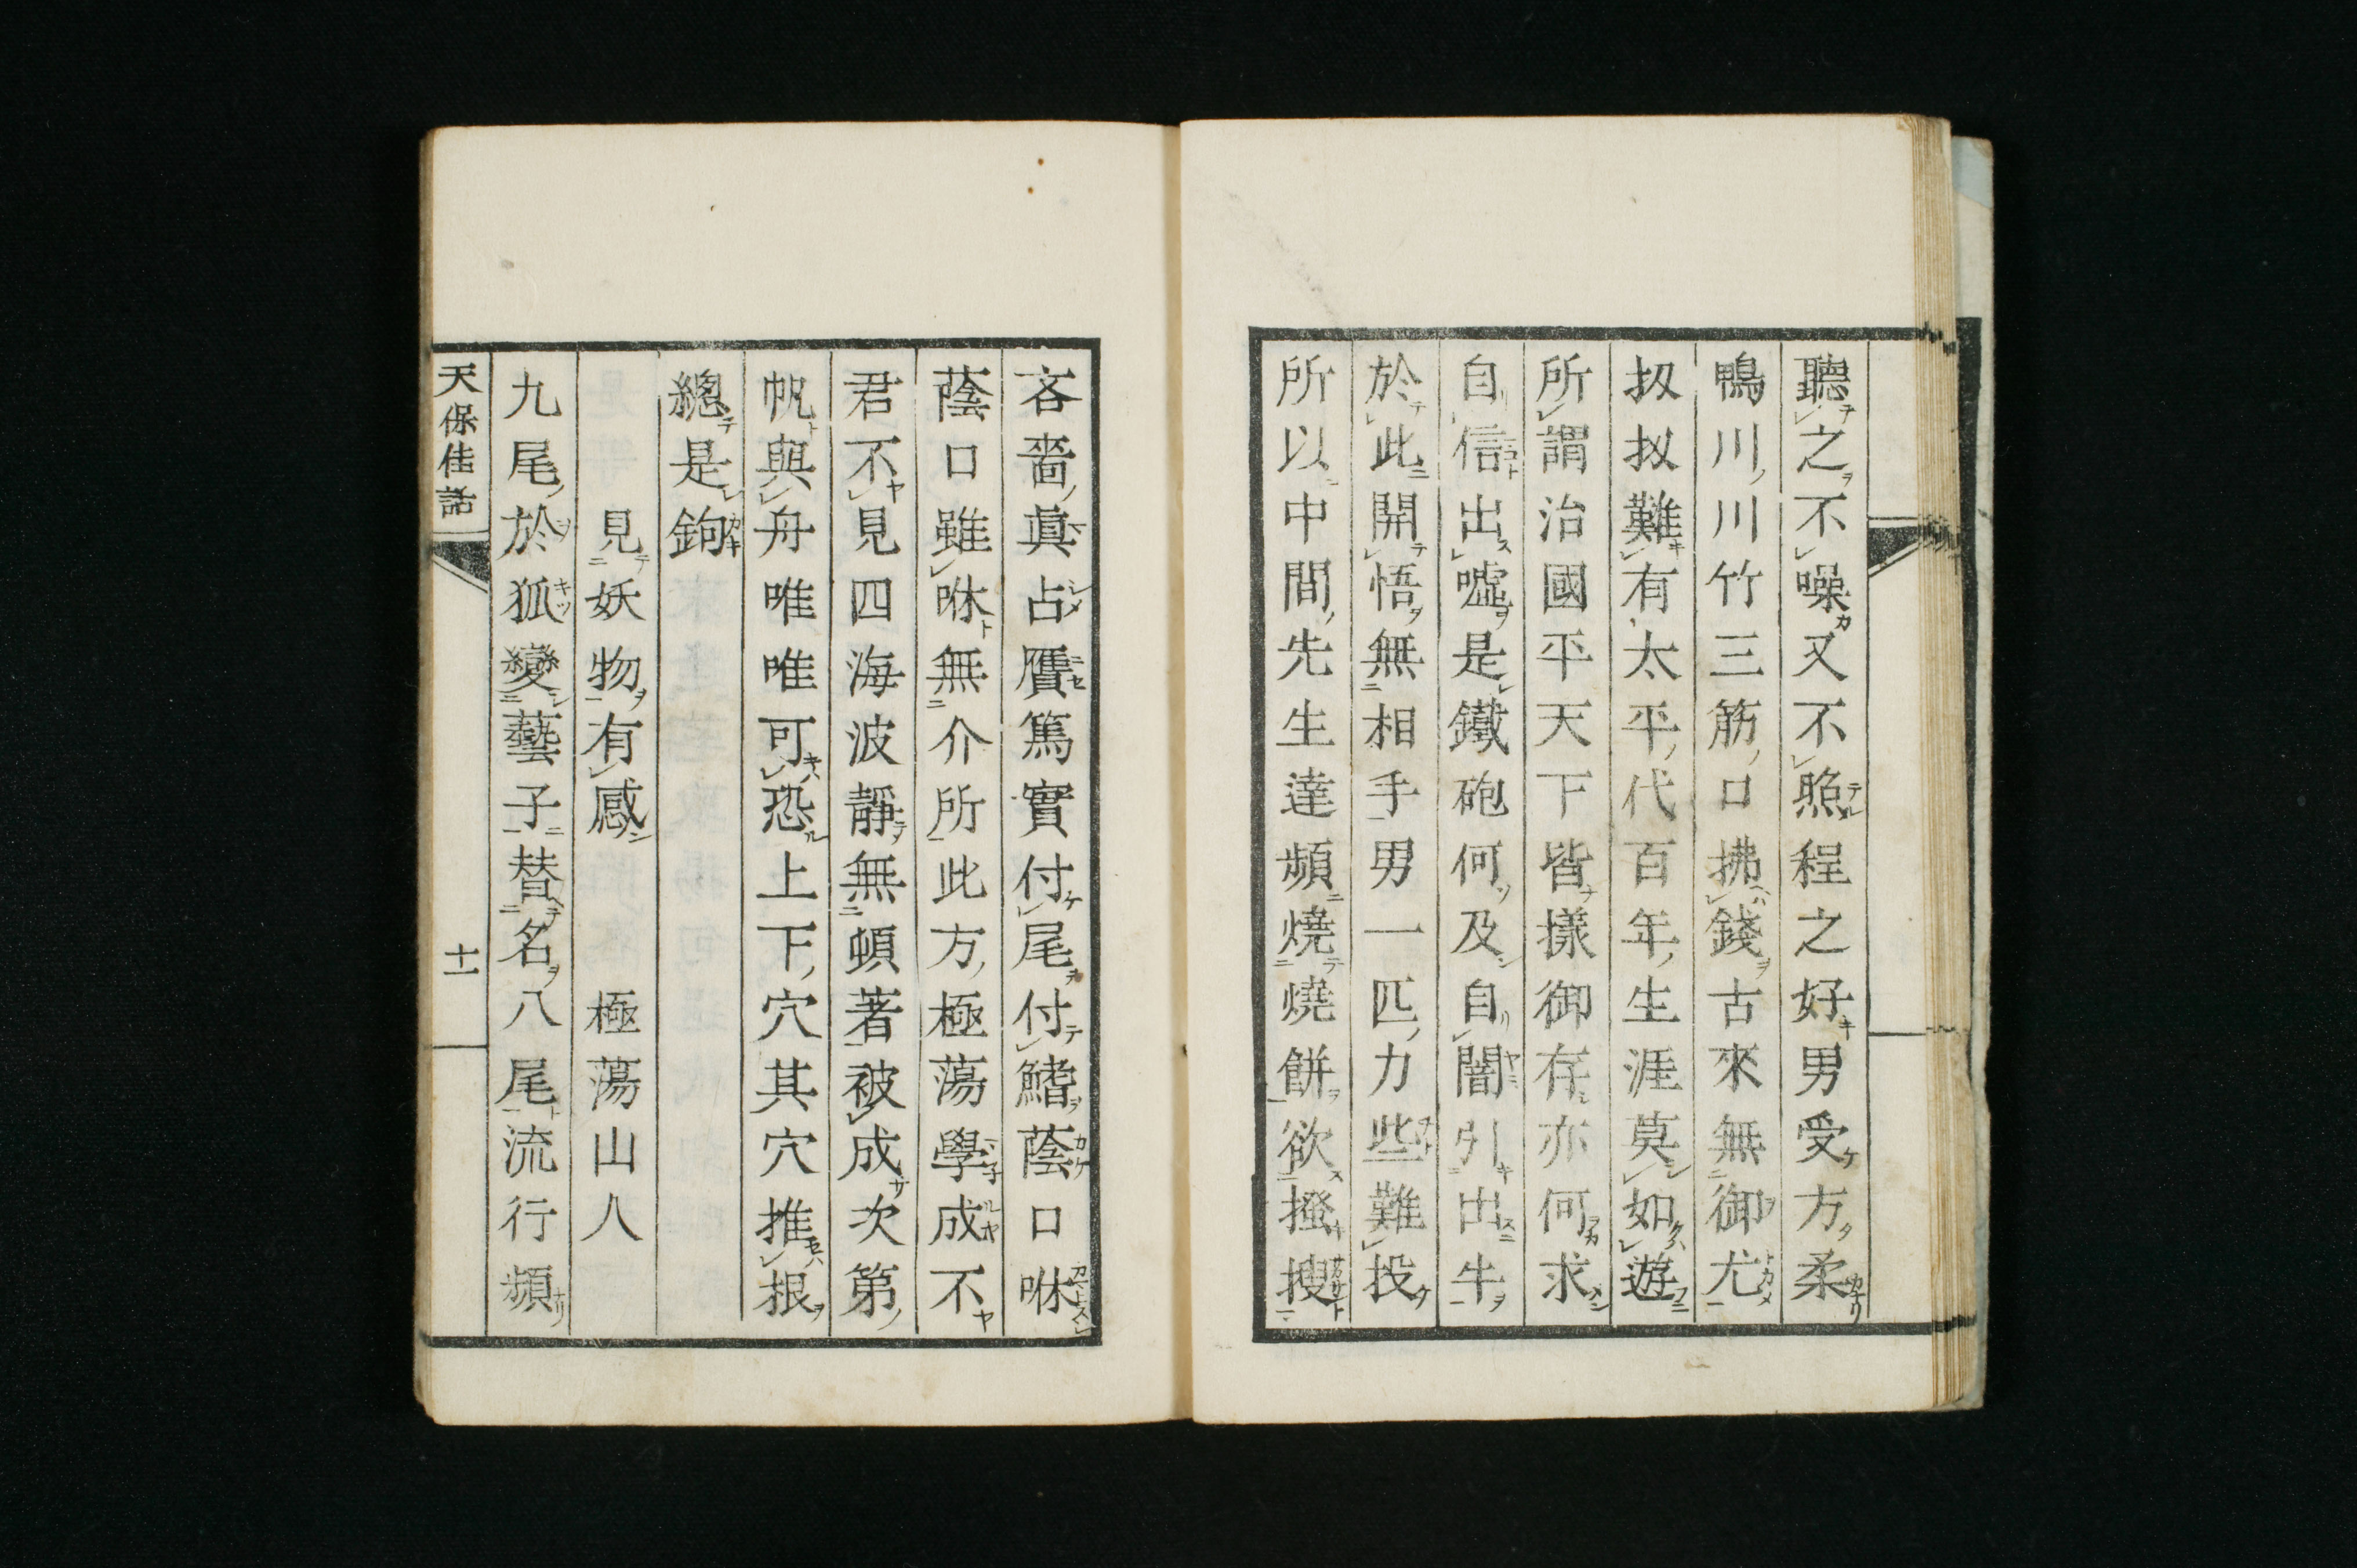 聽之不噪又不㷖程之好男受方柔
鴨川川竹三筋口拂錢古來無御尤
扨扨難有太平代百年生涯莫如遊
所謂治國平天下皆樣御存亦何求
自信出噓是鐵砲何及自闇引出牛
於此開悟無相手男一匹力些難投
所以中間先生達頻燒燒餅欲搔搜
吝嗇眞占贋篤實付尾付鰭蔭口咻
蔭口雖咻無介所此方極蕩學成不
君不見四海波靜無頓著被成次第
帆與舟唯唯可恐上下穴其穴推根
總是鉤
見妖物有感　極蕩山人
九尾於狐變藝子替名八尾流行頻
天保佳話　十一